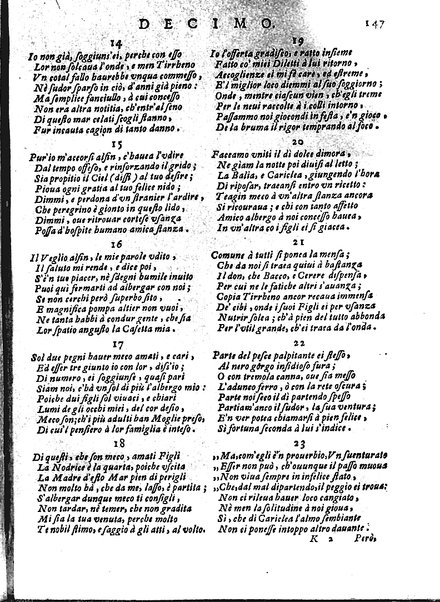 DECIMO. 147
14
Io non già, soggiuns'ei, perche con esso
Lor non solcaua l'onde, e men Tirrheno
Vn cotal fallo haurebbe vnqua commesso,
Nè sudor sparso in ciò, d'anni già pieno:
Ma semplice fanciullo, à cui concesso
Non era altra notitia, ch'entr'al seno
Di questo mar celati scogli stanno,
Fur incauta cagion di tanto danno.
15
Pur'io m'accorsi alfin, c'hauea l'vdire
Dal tempo offeso, e rinforzando il grido;
Sia propitio il Ciel (dissi) al tuo desire;
Pioua ogni gratia al tuo felice nido;
Dimmi, e perdona d'vn stranier l'ardire,
Che peregrino è gionto in questo lido,
Dimmi, oue ritrouar cortese vsanza
Possa d'hospite humano amica stanza.
16
Il Veglio alfin, le mie parole vdito,
Il saluto mi rende, e dice poi,
S'è'n tuo piacer, nè sdegni humile inuito
Puoi qui fermarti ad albergar con noi;
Se non cerchi però superbo sito,
E magnifica pompa altier non vuoi,
Ne tanta babbi à condur gente, che sia
Lor spatio angusto la Casetta mia.
17
Sol due pegni hauer meco amati, e cari,
Ed esser tre giunto io con lor, diss'io;
Di numero, ei soggiunse, quasi pari
Siam noi, c'hà vn sol di più l'albergo mio:
Poiche dui figli sol viuaci, e chiari
Lumi de gli occhi miei, del cor desio,
Meco son; ch'i più adulti han Moglie preso,
Di cui'l pensiero à lor famiglia è inteso.
18
Di questi, che son meco, amati Figli
La Nodrice è la quarta, poiche vscita
La Madre d'esto Mar pien di perigli
Non molto hà, che da me, lasso, è partita;
S'albergar dunque meco ti consigli,
Non tardar, nè temer, che non gradita
Mi sia la tua venuta, perche molto
Te nobil stimo, e saggio à gli atti, al volto.
19
Io l'offerta gradisco, e ratto insieme
Fatto co' miei Diletti à lui ritorno,
Accoglienze ei mi fè care, ed estreme,
E'l miglior loco diemmi al suo soggiorno;
Onde, mentre ciascun vien, ch'egli treme
Per le neui raccolte à i colli intorno,
Passammo noi giocondi in festa, e'n gioco,
De la bruma il rigor temprando al foco.
20
Faceamo vniti il dì dolce dimora,
Nè giam la notte poi diuisi al letto;
La Balia, e Cariclea, giungendo l'hora
Di riposar, traeansi entro vn ricetto:
Teagin meco à vn'altra stanza ancora
Si ricouraua; e chi con tanto affetto
Amico albergo à noi concesso hauea,
In vn'altra co i figli ei si giacea.
21
Comune à tutti si ponea la mensa;
Che da noi si trahea quiui à bastanza
Il don, che Bacco, e Cerere dispensa,
Per cui ne le fatiche altri s'auanza;
Copia Tirrheno ancor recaua immensa
De' cibi, onde i suoi Figli ei per vsanza
Nutrir solea; ch'à pien del tutto abbonda
Per l'vtil grande, ch'ei traea da l'onda.
22
Parte del pesce palpitante ei stesso,
Al nero gorgo insidioso fura;
O con tremola canna, oue sia messo
L'adunco ferro, ò con la rete oscura;
Parte noi seco il dì partendo spesso
Partiam'anco il sudor, la sua ventura;
E'n ver potea chiamarsi à pien felice,
Si fortuna seconda à lui s'indice.
23
„Ma, com'egli è'n prouerbio, Vn suenturato
„Esser non può, ch'ouunque il passo muoua
„Non viua sempre in infelice stato,
„Che, dal mal dipartendo, il peggio ei troua:
Ei non rileua hauer loco cangiato,
Nè men la solitudine à noi gioua,
Sì, che di Cariclea l'almo sembiante
Non ci ponesse intoppo altro dauante.
K 2 Però,